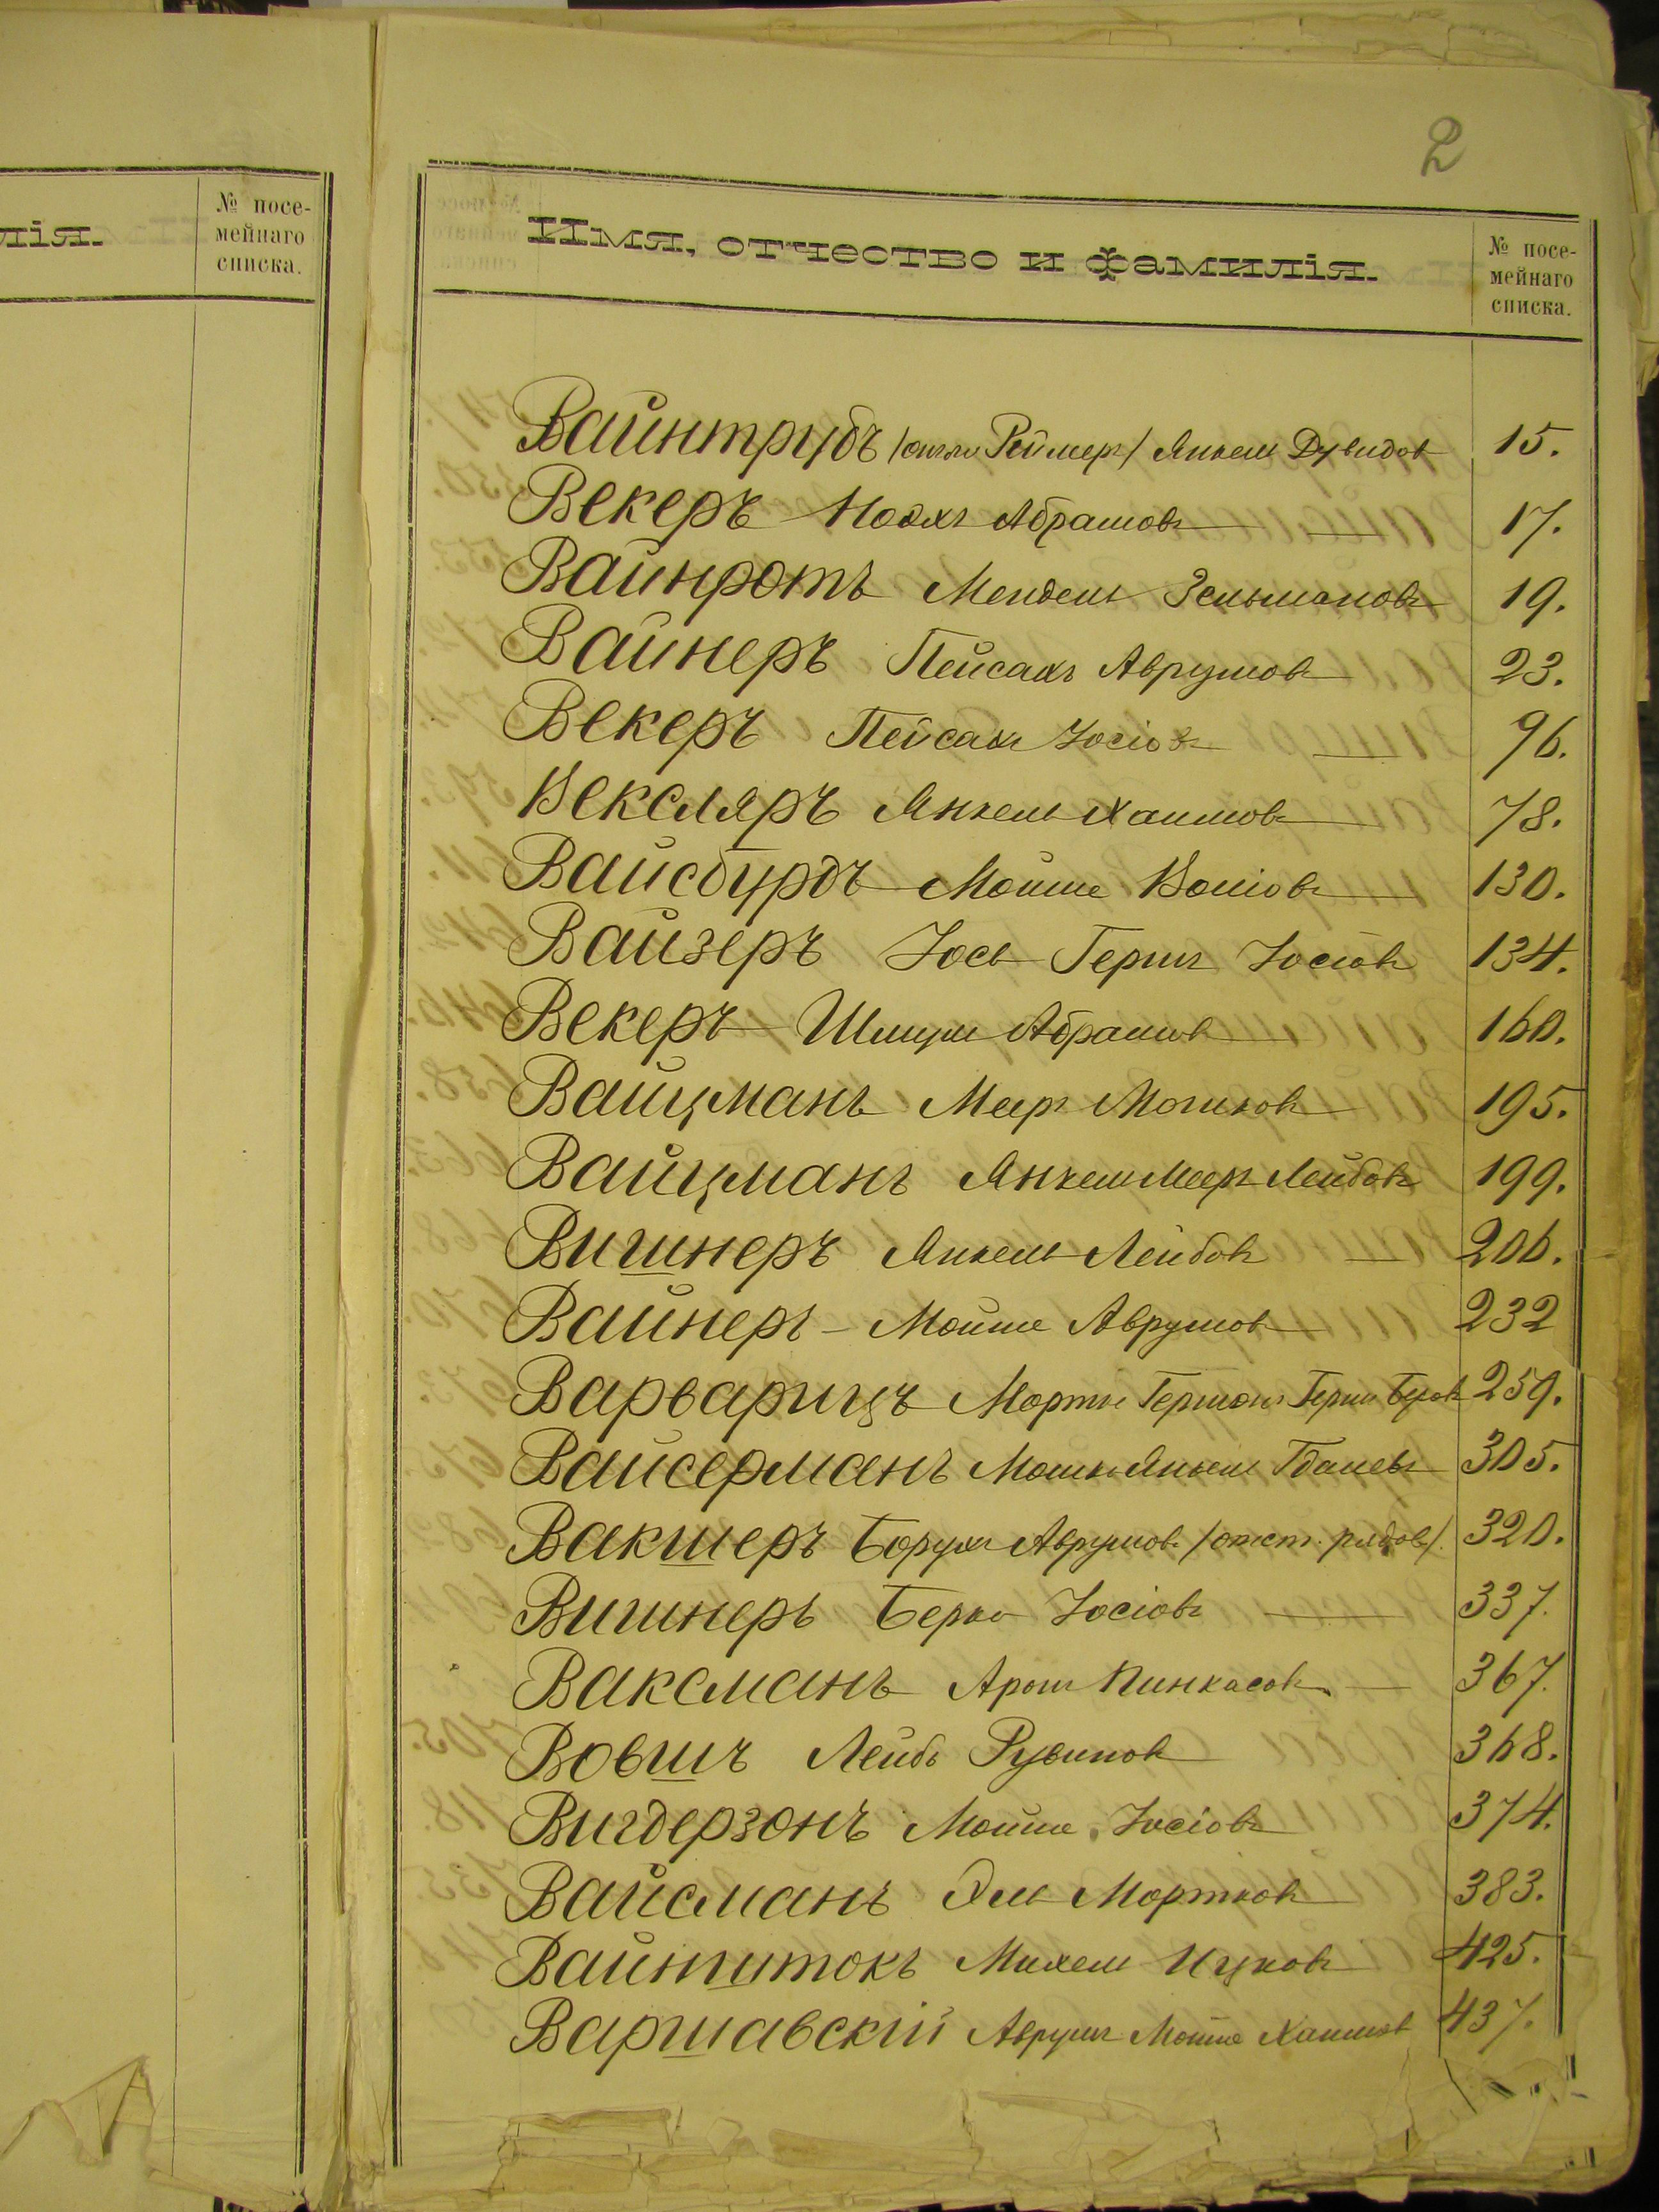 2
лія.
№ посе-
мейнаго
списка.
Имя, отчество и фамилія.
№ посе-
мейнаго
списка.
Вайнтрубъ /онъ же Реймеръ/ Янкель Дувидов 15.
Векеръ Ноахъ Абрамовъ 17.
Вайнротъ Мендель Зельмановъ 19.
Вайнеръ Пейсахъ Аврумовъ 23.
Векеръ Пейсахъ Іосіовъ 96.
Вексляръ Янкель Хаимовъ 78.
Вайсбурдъ Мойше Волiовъ 130.
Вайзеръ Іось Гершъ Іосіовъ 134.
Векеръ Шмуль Абрамов 160.
Вайцманъ Мееръ Мошковъ 195.
Вайцманъ Янкель Мееръ Лейбовъ 199.
Вишнеръ Янкель Лейбовъ 206.
Вайнеръ - Мойше Аврумовъ 232
Варварицъ Мортко Гершонъ Герш 259.
Вайсерманъ Мошко Янкель 305.
Вакшеръ Борухъ Аврумов. /отст. рядов./. 320.
Вишнеръ Берко Іосіовъ 337.
Ваксманъ Аронъ Пинкасовъ. 367.
Вовшъ Лейбъ Рувиновъ 368.
Вигдерзонъ Мойше Іосіовъ 374.
Вайсманъ Эль Мортковъ 383.
Вайншитокъ Михель Ицковъ 425.
Варшавскій Аврумъ Мойше Хаимов 437.